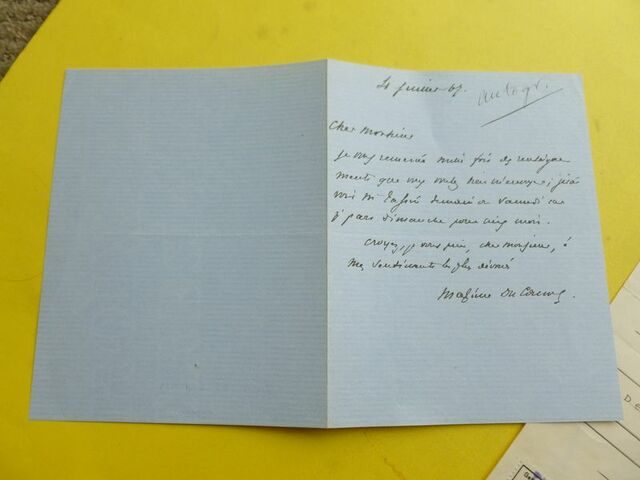 4 juillet 67.
autogr.
Cher Monsieur
je vous remercie mille fois des renseigne
ments que vous voulez bien m'envoyer; j'irai
voir Mr demain ou samedi car
je pars dimanche pour cinq mois.
croyez, je vous prie, cher monsieur, à
mes sentiments les plus dévoués
Maxime Du Camp.